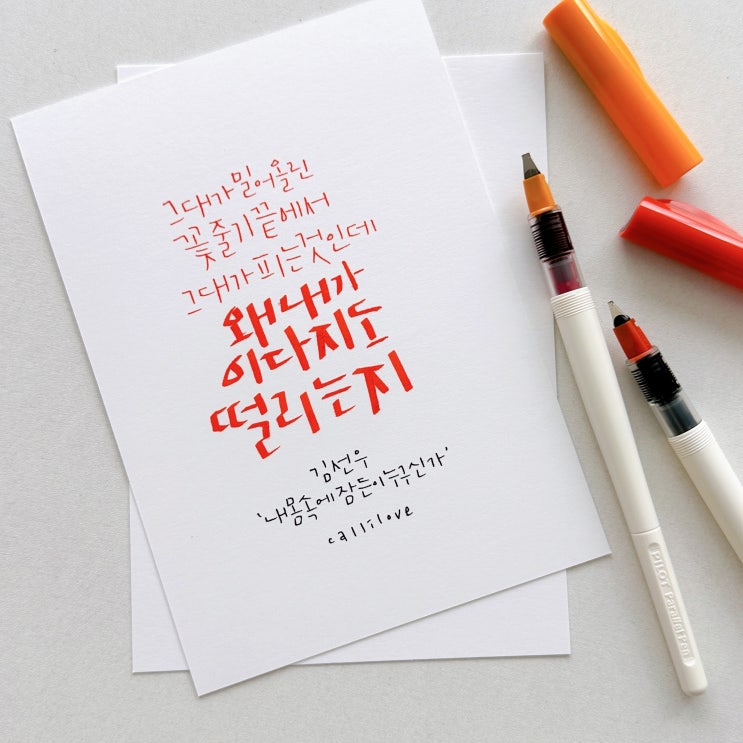 그대가 밀어올린
꽃줄기 끝에서
그대가 피는 것인데
왜 내가
이다지도
떨리는지
김선우
'내 몸속에 잠든 이 누구신가'
callilove
PILOT Parallel Pen